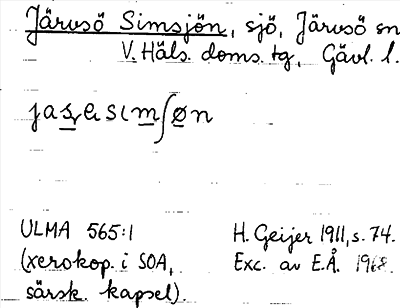 Järvsö Simsjön, sjö, Järvsö sn
V. Häls. doms. tg, Gävl. l.
ULMA 565:1
(xerokop. i SOA,
särsk. kapsel).
H. Geijer 1911, s. 74.
Exc. av E.Å. 1968.